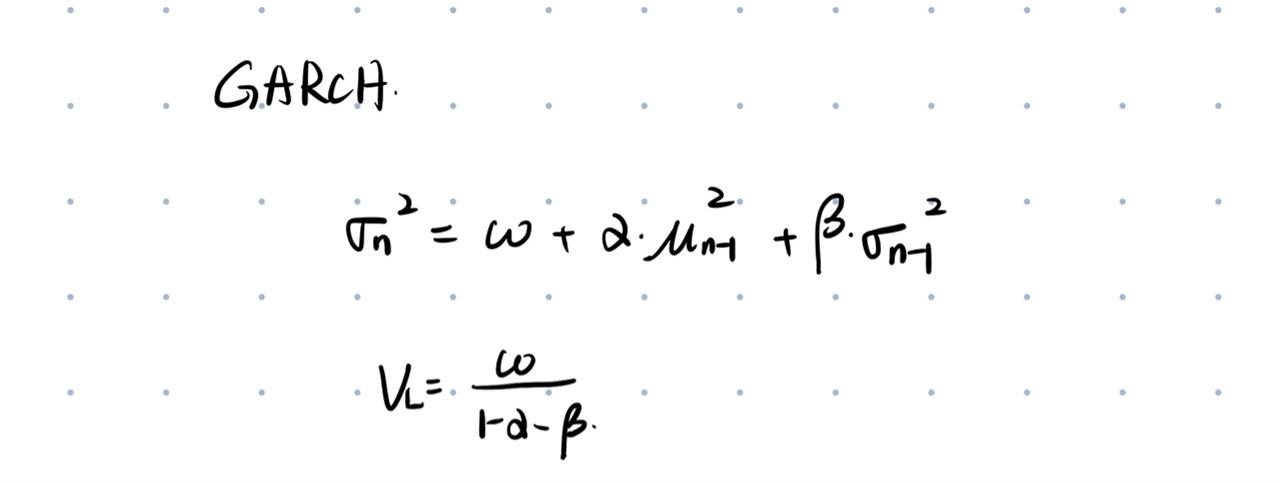 GARCH.
σn² = ω + α·μn-1² + β·σn-1²
VL = ω / 1-α-β.